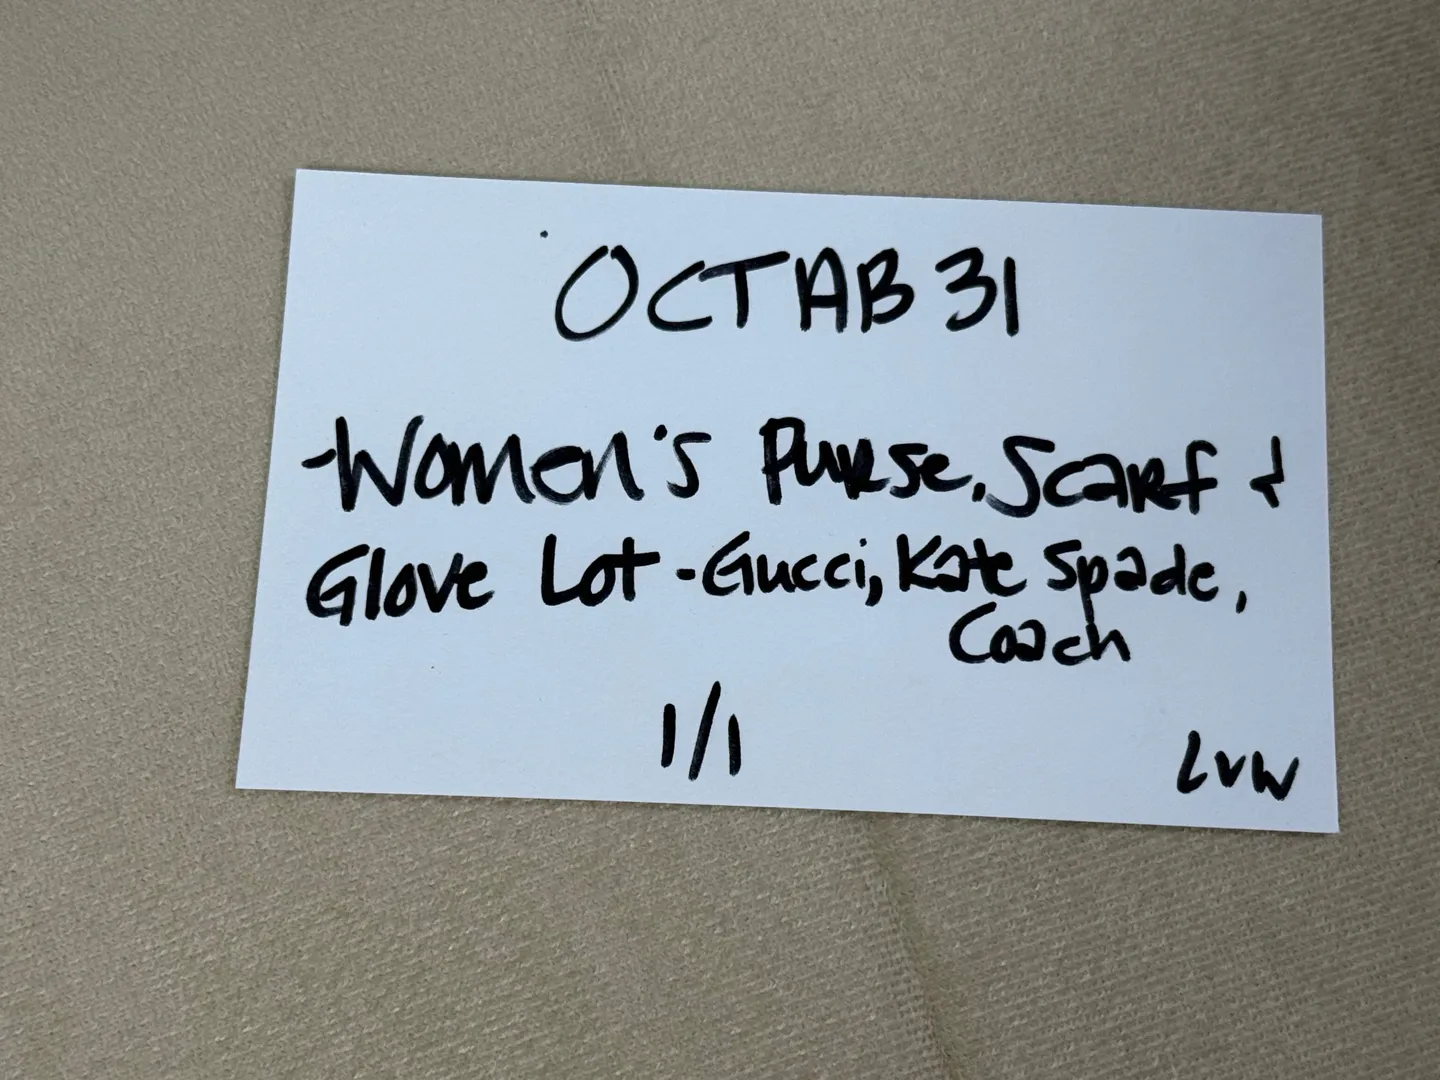 OCTAB31
-Women's Purse, Scarf &
Glove Lot - Gucci, Kate Spade,
Coach
1/1
LVW